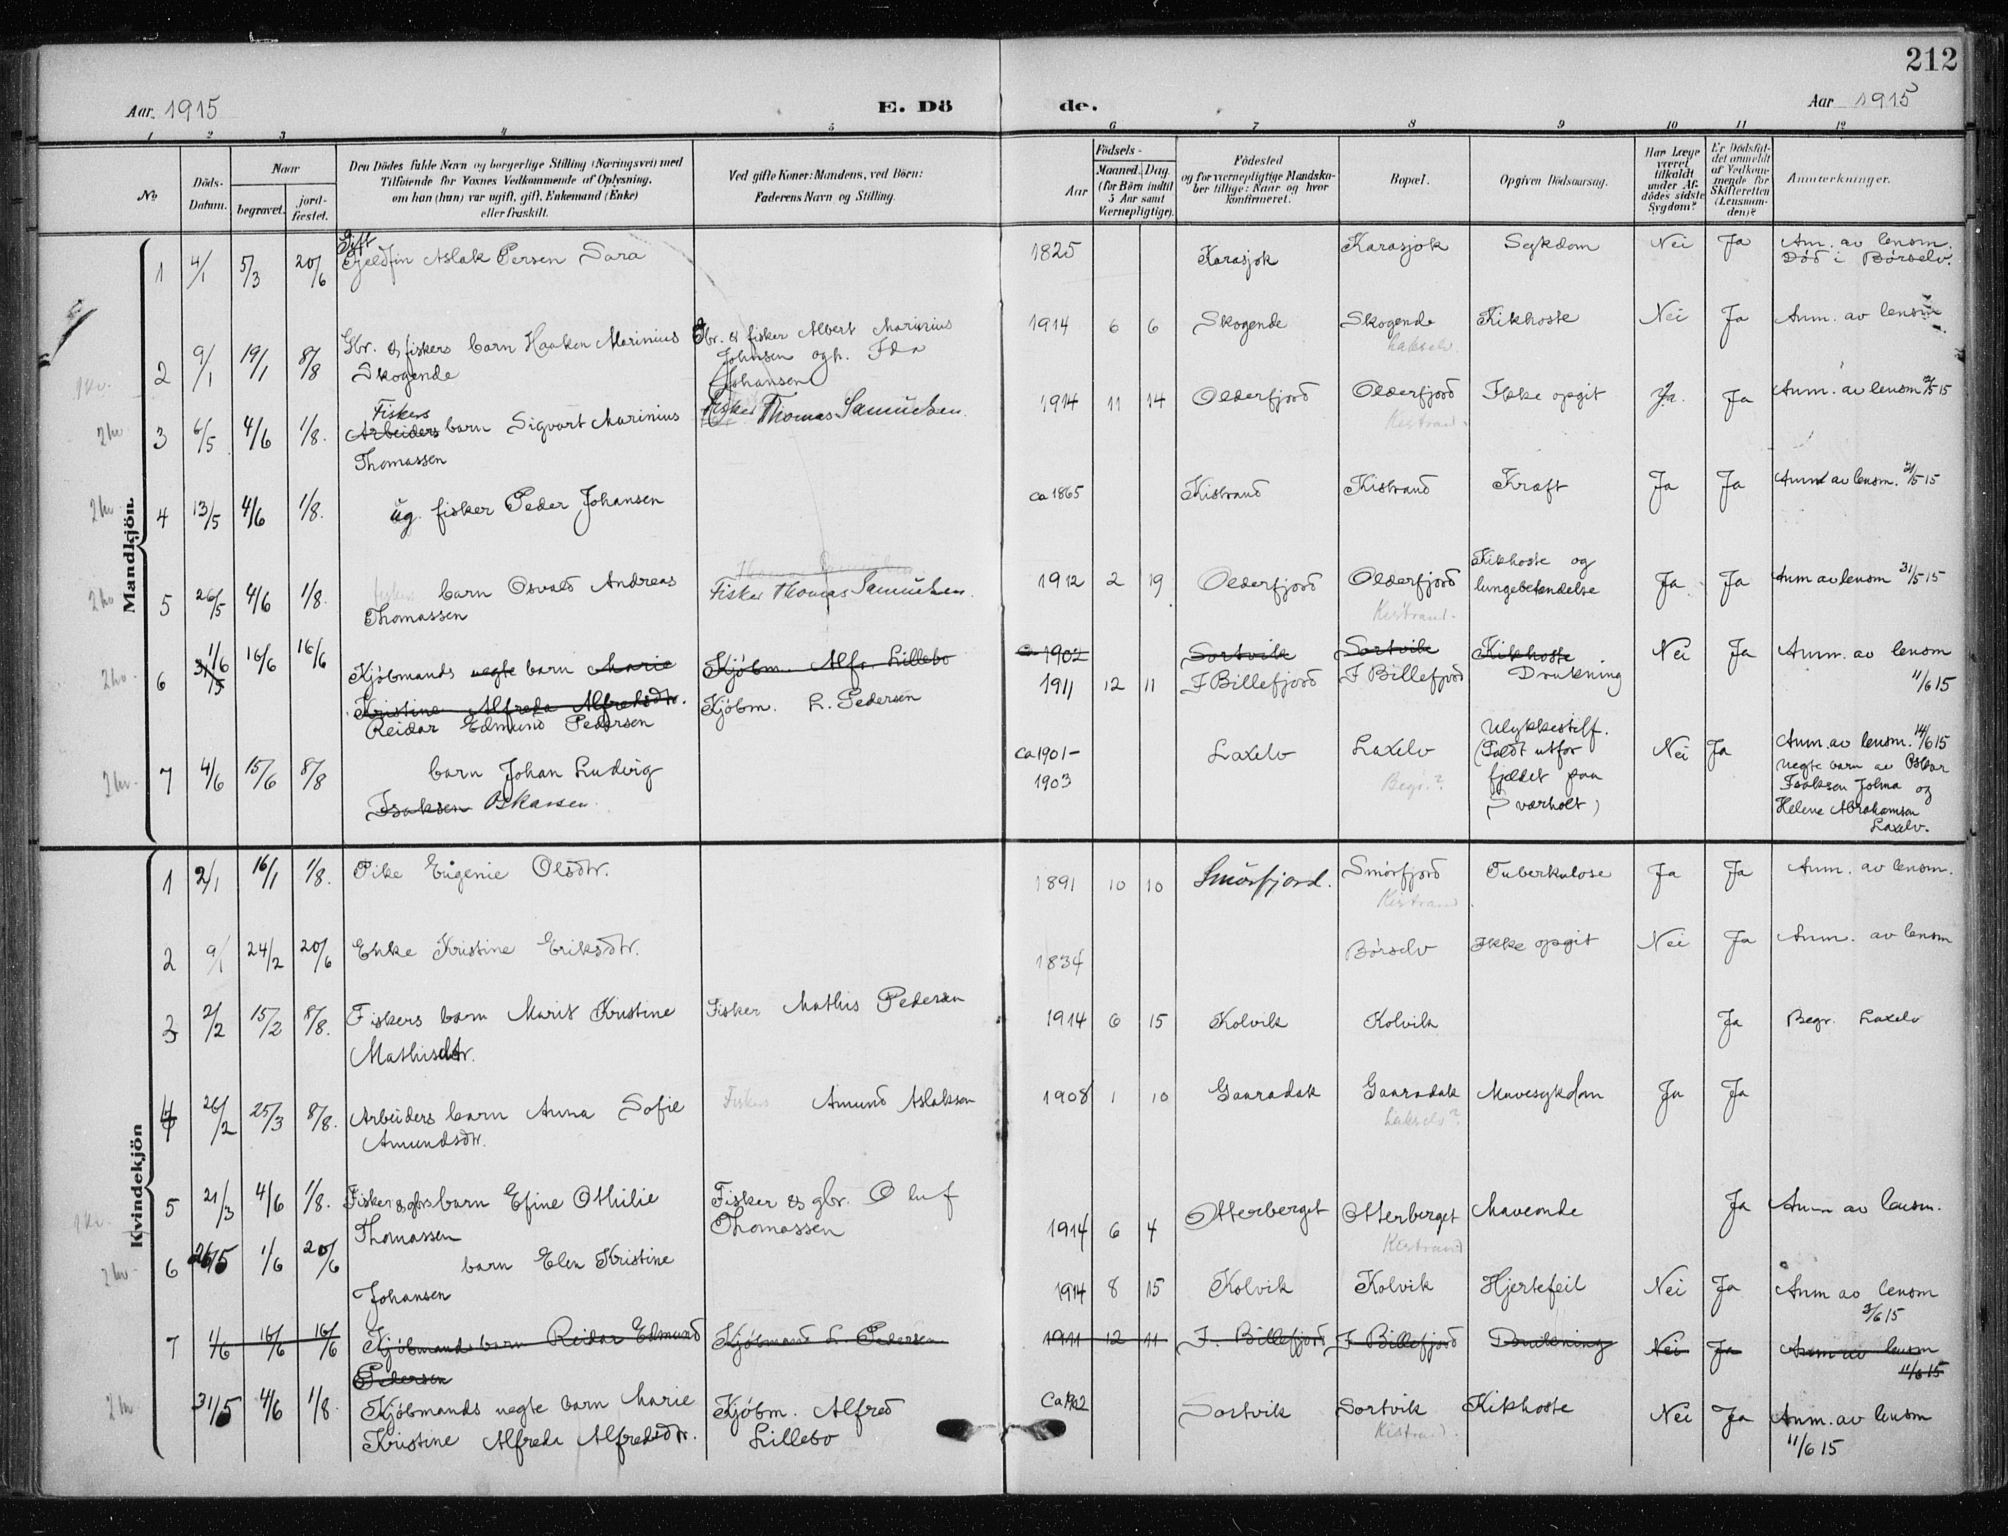 212
Aar 1915
E. Dö
de.
Aar 1915
1 2 3 4 5 6 7 8 9 10 11 12
No
Döds-
Datum.
Naar
begravet.
jord-
fæstet.
Den Dödes fulde Navn og borgerlige Stilling (Næringsvei) med
Tilföiende for Voxnes Vedkommende af Oplysning,
om han (hun) var ugift, gift, Enkemand (Enke)
eller fraskilt.
Ved gifte Koner: Mandens, ved Börn:
Faderens Navn og Stilling.
Födsels-
Aar
Maaned. Dag.
(for Börn indtil
5 Aar samt
Værnepligtige).
Födested
og for værnepligtige Mandska-
ber tillige: Naar og hvor
konfirmeret.
Bopæl.
Opgiven Dödsaarsag.
Har Læge
været
tilkaldt
under Af-
dödes sidste
Sygdom?
Er Dödsfal-
det anmeldt
af Vedkom-
mende for
Skifteretten
(Lensman-
den)?
Anmerkninger.
Mandkjön.
Gift
1 4/1 5/3 20/6 Fjeldfin Aslak Persen Sara 1825 Karasjok Karasjok Sykdom Nei Ja Am. av lensm.
Död i Børselv.
2 9/1 19/1 8/8 Gbr. & fiskers barn Haakon Marinius Gbr. & fisker Albert Marinius 1914 6 6 Skogende Skogende Kikhoste Nei Ja Anm. av lensm
Skogende Johnsen og h. Ida Lakselv
Johansen
Fiskers
3 6/5 4/6 1/8. Arbeiders barn Sigvart Marinius Fisker Thomas Samuelsen. 1914 11 14 Olderfjord Olderfjord Ikke opgit Ja. Ja Anm. av lensm 12/5 15
Thomassen Kistrand.
4 13/5 4/6 1/8. ug. fisker Peder Johansen ca 1865 Kistrand Kistrand Kræft Ja Ja Anm av lensm. 21/5 15
5 26/5 4/6 1/8. barn Osvald Andreas Fisker Thomas Samuelsen. 1912 2 19 Olderfjord Olderfjord Kikhoste og
lungebetendelse Ja Ja Anm av lensm 31/5 15
Thomassen Kistrand.
6 31/5 1/6 16/6 16/6 Kjøbmands uegte barn Marie Kjøbm. Alfr. Lillebo 1902 Sortvik Sortvik Kikhoste Nei Ja Anm. av lensm
Kristine Alfreda Alfredsdtr. Kjøbm. L. Pedersen 1911 12 11 F Billefjord F Billefjord Drukning 11/6 15
Reidar Edmund Pedersen
7 4/6 15/6 8/8 barn Johan Ludvig ca 1901-
1903 Laxelv Laxelv Ulykkestilf.
(Faldt utfor
fjeldet paa
Sværholt) Nei Ja Anm. av lensm. 14/6 15
Isaksen Oskarsen. Begr.? uegte barn av Oskar
Isaksen Johna og
Helene Abrahamsen
Laxelv.
Kvindekjön
1 2/1 16/1 1/8. Pike Eugenie Olsdtr. 1891 10 10 Smørfjord. Smørfjord Tuberkulose Ja Ja Anm. av lensm.
Kistrand
2 9/1 24/2 20/6 Enke Kristine Eriksdtr. 1834 Børselv Ikke opgit Nei Ja Anm. av lensm
3 2/2 15/2 8/8. Fiskers barn Marit Kristine Fisker Mathis Pedersen 1914 6 15 Kolvik Kolvik Ja Begr. Laxelv
Mathisdtr.
4 26/2 25/3 8/8. Arbeiders barn Anna Sofie Fiskers Amund Aslaksen 1908 1 10 Gaaradak Gaaradak Mavesykdom Ja Ja
Amundsdtr. Lakselv?
5 21/3 4/6 1/8. Fisker & gbrs barn Efine Othilie Fisker & gbr. Oluf 1914 6 4 Otterberget Otterberget Maveonde Ja Anm av lensm.
Thomassen Thomassen Kistrand
6 26/5 1/6 20/6 barn Elen Kristine 1914 8 15 Kolvik Kolvik Hjertefeil Nei Ja Anm av lensm
Johansen 2/6 15
7 1/6 16/6 16/6 Kjøbmands barn Reidar Edmund Kjøbmand L. Pedersen 1911 12 11 F. Billefjord F Billefjord Drukning Nei Ja Anm av lensm
Pedersen 11/6 15
31/5 4/6 1/8. Kjøbmands uegte barn Marie Kjøbm. Alfred Ca 1902 Sortvik Sortvik Kikhoste Nei Ja Anm. av lensm
Kristine Alfreda Alfredsdtr. Lillebo Kistrand. 11/6 15